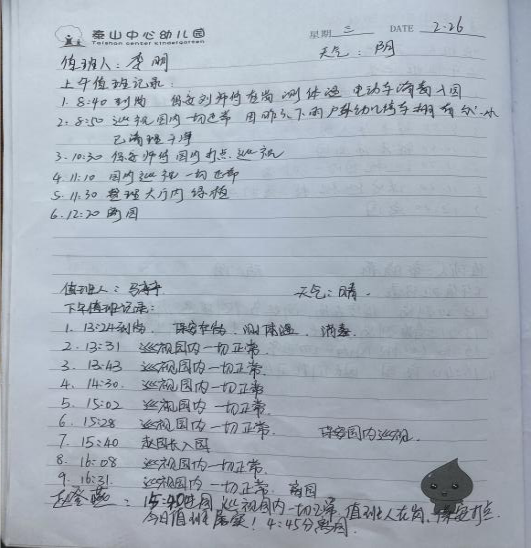 泰山中心幼儿园 星期 三 DATE 2.26
Taishan center kindergarten
值班人：李明 天气：阴
上午值班记录：
1. 8:40 到岗 保安刘师傅在岗 测体温 电动车消毒入园
2. 8:50 巡视园内一切正常 因昨天下雨户外幼儿停车棚有积水
已清理干净
3. 10:30 保安师傅园内打点巡视
4. 11:10 园内巡视一切正常
5. 11:30 整理大厅内绿植
6. 12:20 离园
值班人： 天气：晴.
下午值班记录：
1. 13:24到岗 保安在岗！测体温. 消毒.
2. 13:31 巡视园内一切正常.
3. 13:43 巡视园内一切正常.
4. 14:30. 巡视园内一切正常.
5. 15:02 巡视园内一切正常.
6. 15:28 巡视园内一切正常. 保安园内巡视.
7. 15:40 赵园长入园
8. 16:08 巡视园内一切正常.
9. 16:31. 巡视园内一切正常. 离园
：15:40进园，巡视园内一切正常，值班人在岗，保安打点.
今日值班落实！4:45分离园.